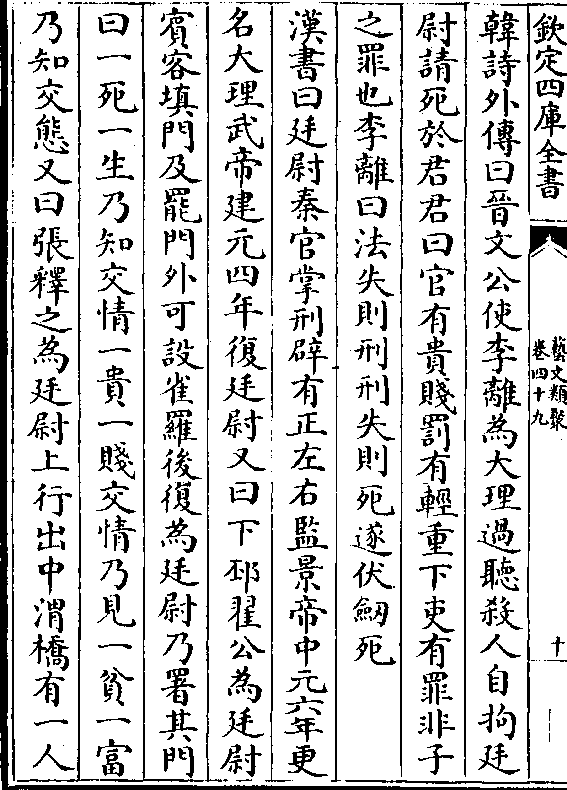 欽定四庫全書
藝文類聚
卷四十九
十
韓詩外傳曰晉文公使李離為大理過聽殺人自拘廷
尉請死於君君曰官有貴賤罰有輕重下吏有罪非子
之罪也李離曰法失則刑刑失則死遂伏劒死
漢書曰廷尉秦官掌刑辟有正左右監景帝中元六年更
名大理武帝建元四年復廷尉又曰下邳翟公為廷尉
賓客填門及罷門外可設雀羅後復為廷尉乃署其門
曰一死一生乃知交情一貴一賤交情乃見一貧一富
乃知交態又曰張釋之為廷尉上行出中渭橋有一人